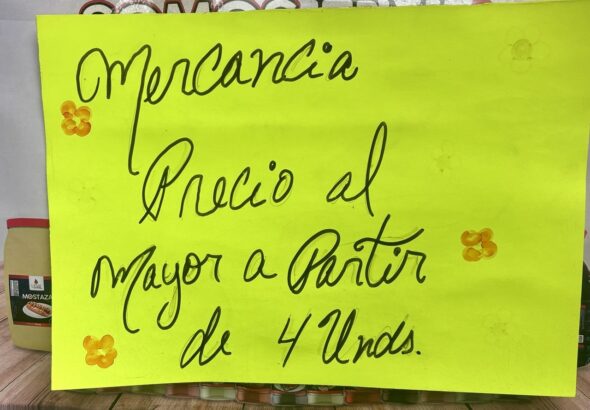 Mercancia
Precio al
Mayor a Partir
de 4 Unds.
MOSTAZA